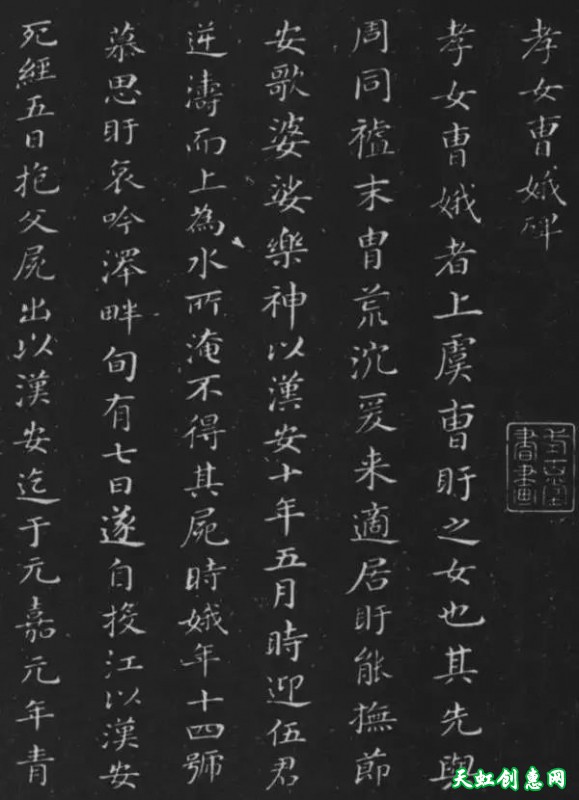 孝女曹娥碑
孝女曹娥者上虞曹盱之女也其先與
周同末胄荒沉爰来適居盱能撫節
安歌婆娑樂神以漢安十年五月時迎伍君
逆濤而上為水所淹不得其屍時娥年十四號
慕思盱哀吟澤畔旬有七日遂自投江以漢安
死經五日抱父屍出以漢安迄于元嘉元年青
天虹创意网